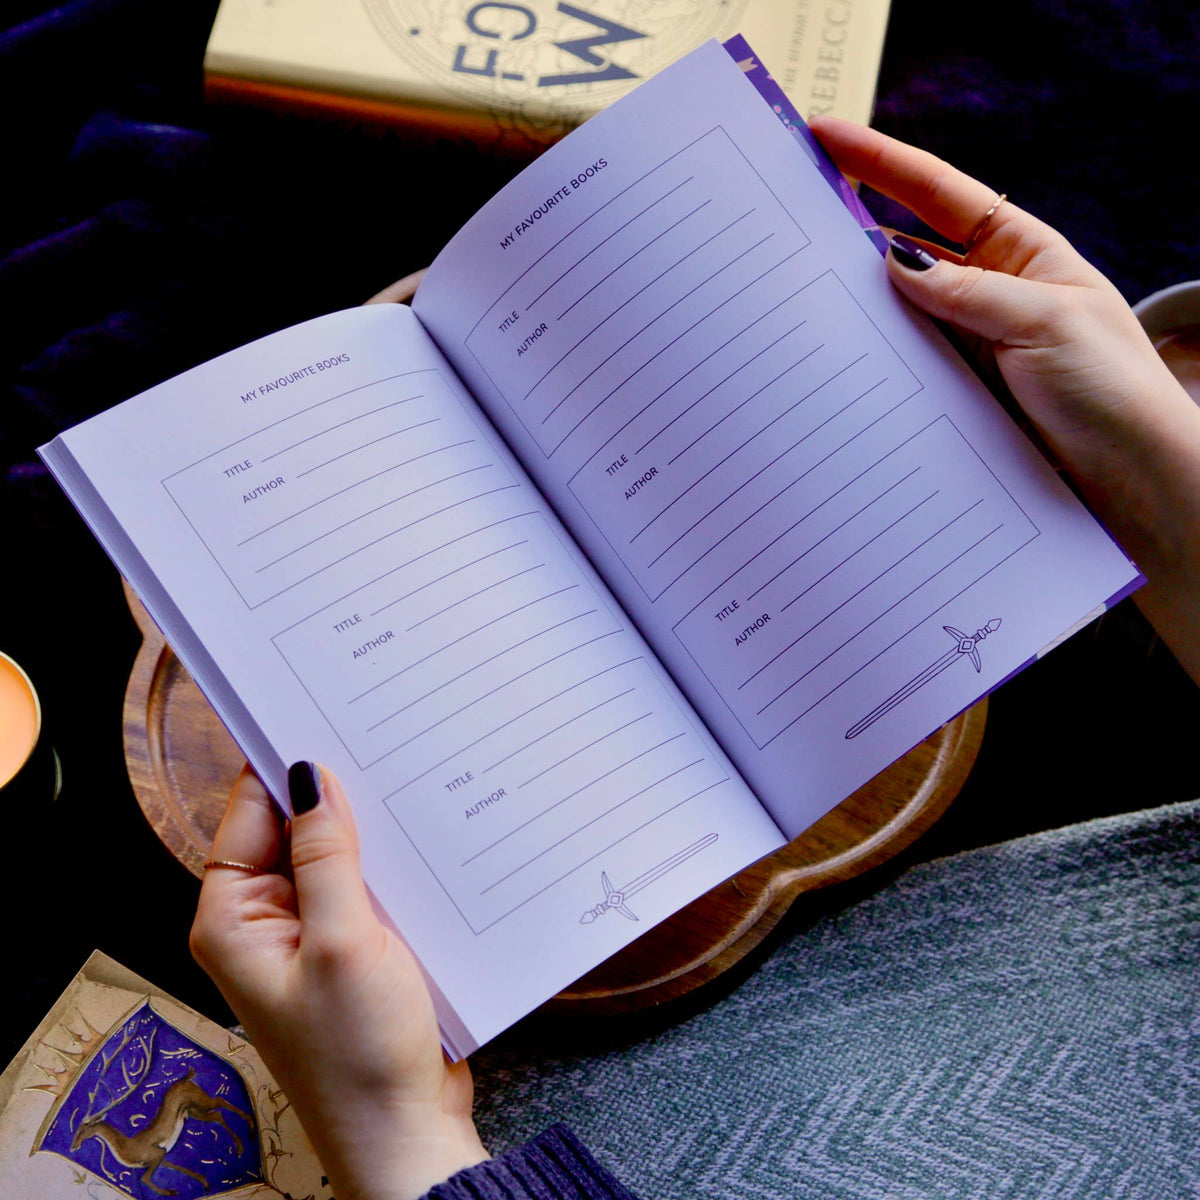 REBECCA
MY FAVOURITE BOOKS
TITLE
AUTHOR
TITLE
AUTHOR
TITLE
AUTHOR
MY FAVOURITE BOOKS
TITLE
AUTHOR
TITLE
AUTHOR
TITLE
AUTHOR